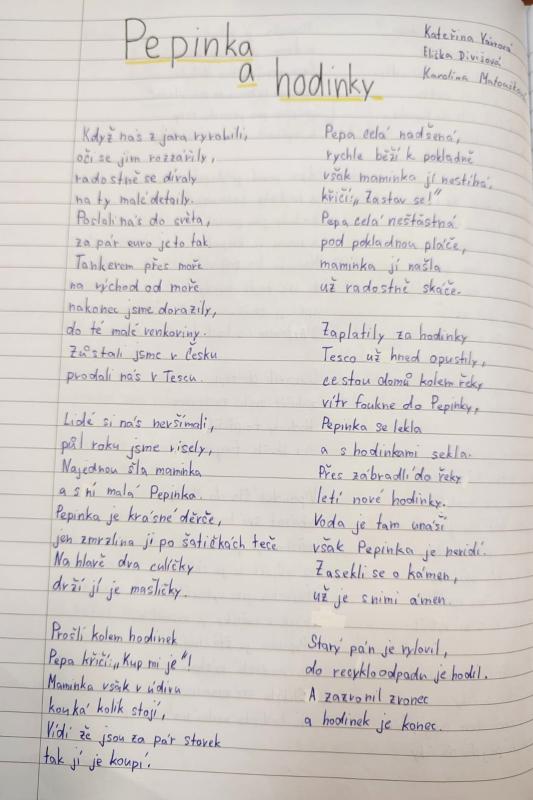 Pepinka
a hodinky
Kateřina Vánrová
Eliška Divišová
Karolína Matoušková
Když nás z jara vyrobili,
oči se jim rozzářily,
radostně se dívaly
na ty malé detaily.
Poslali nás do světa,
za pár euro je to tak
Tankerem přes moře
na východ od moře
nakonec jsme dorazily,
do té malé venkoviny.
Zůstali jsme v Česku
prodali nás v Tescu.
Lidé si nás nevšímali,
půl roku jsme visely,
Najednou šla maminka
a s ní malá Pepinka.
Pepinka je krásné děvče,
jen zmrzlina jí po šatičkách teče
Na hlavě dva culíčky
drží jí je mašličky.
Prošli kolem hodinek
Pepa křičí: „Kup mi je"!
Maminka však v údivu
kouká kolik stojí,
Vidí že jsou za pár stovek
tak jí je koupí.
Pepa celá nadšená,
rychle běží k pokladně
však maminka jí nestíhá,
křičí: „Zastav se!"
Pepa celá nešťastná
pod pokladnou pláče,
maminka jí našla
už radostně skáče.
Zaplatily za hodinky
Tesco už hned opustily,
cestou domů kolem řeky
vítr foukne do Pepinky,
Pepinka se lekla
a s hodinkami sekla.
Přes zábradlí do řeky
letí nové hodinky.
Voda je tam unáší
však Pepinka je nevidí.
Zasekli se o kámen,
už je s nimi ámen.
Starý pán je vylovil,
do recykloodpadu je hodil.
A zazvonil zvonec
a hodinek je konec.